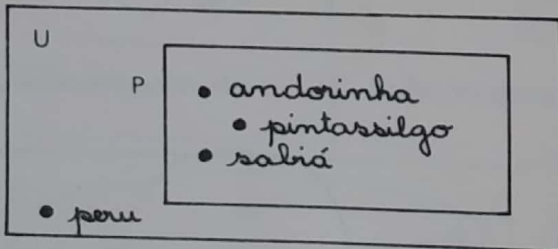 U
P
andorinha
pintassilgo
sabiá
peru